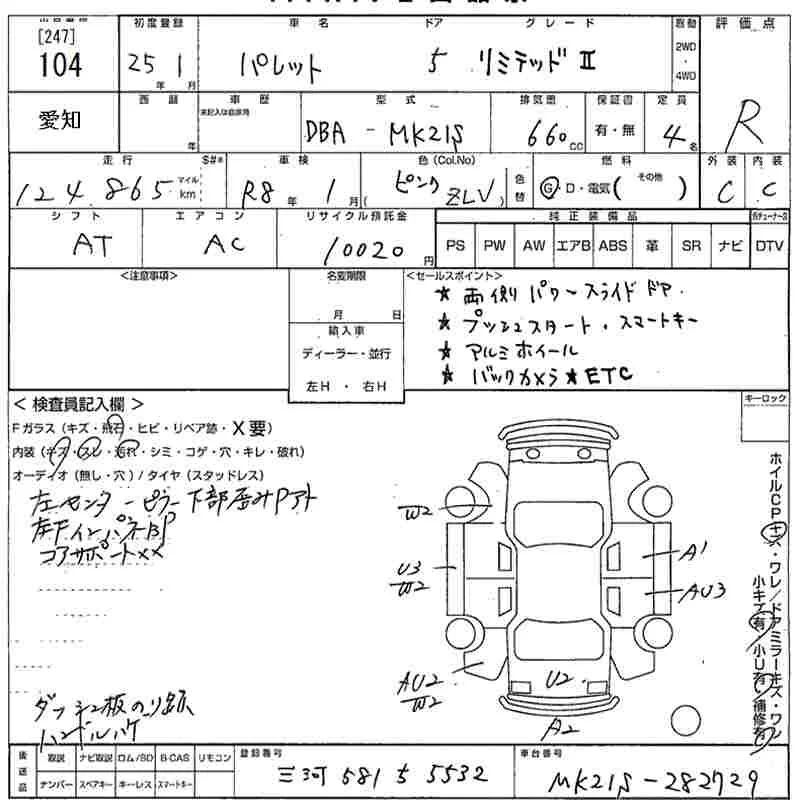 [247]
104
愛知
初度登録
25年 1月
車名
パレット
ドア
5
グレード
リミテッドⅡ
駆動
2WD
・
4WD
評価点
R
西暦
年
車歴
未記入は自家用
型式
DBA - MK21S
排気量
660cc
保証書
有・無
定員
4名
走行
124,865
マイル
km
S#*
車検
R8年 1月
色(Col.No)
(ピンク ZLV)
色替
燃料
G・D・電気( その他 )
外装
C
内装
C
シフト
AT
エアコン
AC
リサイクル預託金
10020円
純正装備品
PS PW AW エアB ABS 革 SR ナビ DTV
<注意事項>
名変期限
月 日
輸入車
ディーラー・並行
左H ・ 右H
<セールスポイント>
★ 両側パワースライドドア.
★ プッシュスタート・スマートキー
★ アルミホイール
★ バックカメラ★ETC
< 検査員記入欄 >
Fガラス(キズ・飛石・ヒビ・リペア跡・X要)
内装(キズ・スレ・汚れ・シミ・コゲ・穴・キレ・破れ)
オーディオ(無し・穴) / タイヤ(スタッドレス)
左センターピラー下部凹みPアト
コアサポートXX
ダッシュ板のり跡
ハンドルハゲ
キーロック
W2
U3
W2
AU2
W2
A1
AU3
U2
A2
ホイルCPキズ・ワレ/ドアミラーキズ・ワレ
小キズ有・小U有・補修有
後送品
取説 ナビ取説 ロム/SD B-CAS リモコン
ナンバー スペアキー キーレス スマートキー
登録番号
三河 581 ち 5532
車台番号
MK21S-282729